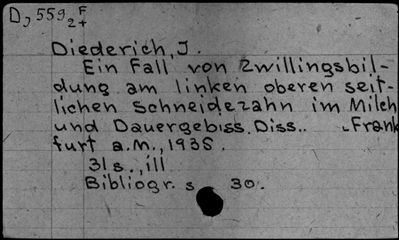 D, 559 2 F +
Diederich, J.
Ein Fall von Zwillingsbil-
dung am linken oberen seit-
lichen Schneidezahn im Milch
und Dauergebiss. Diss.. Frank
furt a.M., 1935.
31 s., ill
Bibliogr. s 30.